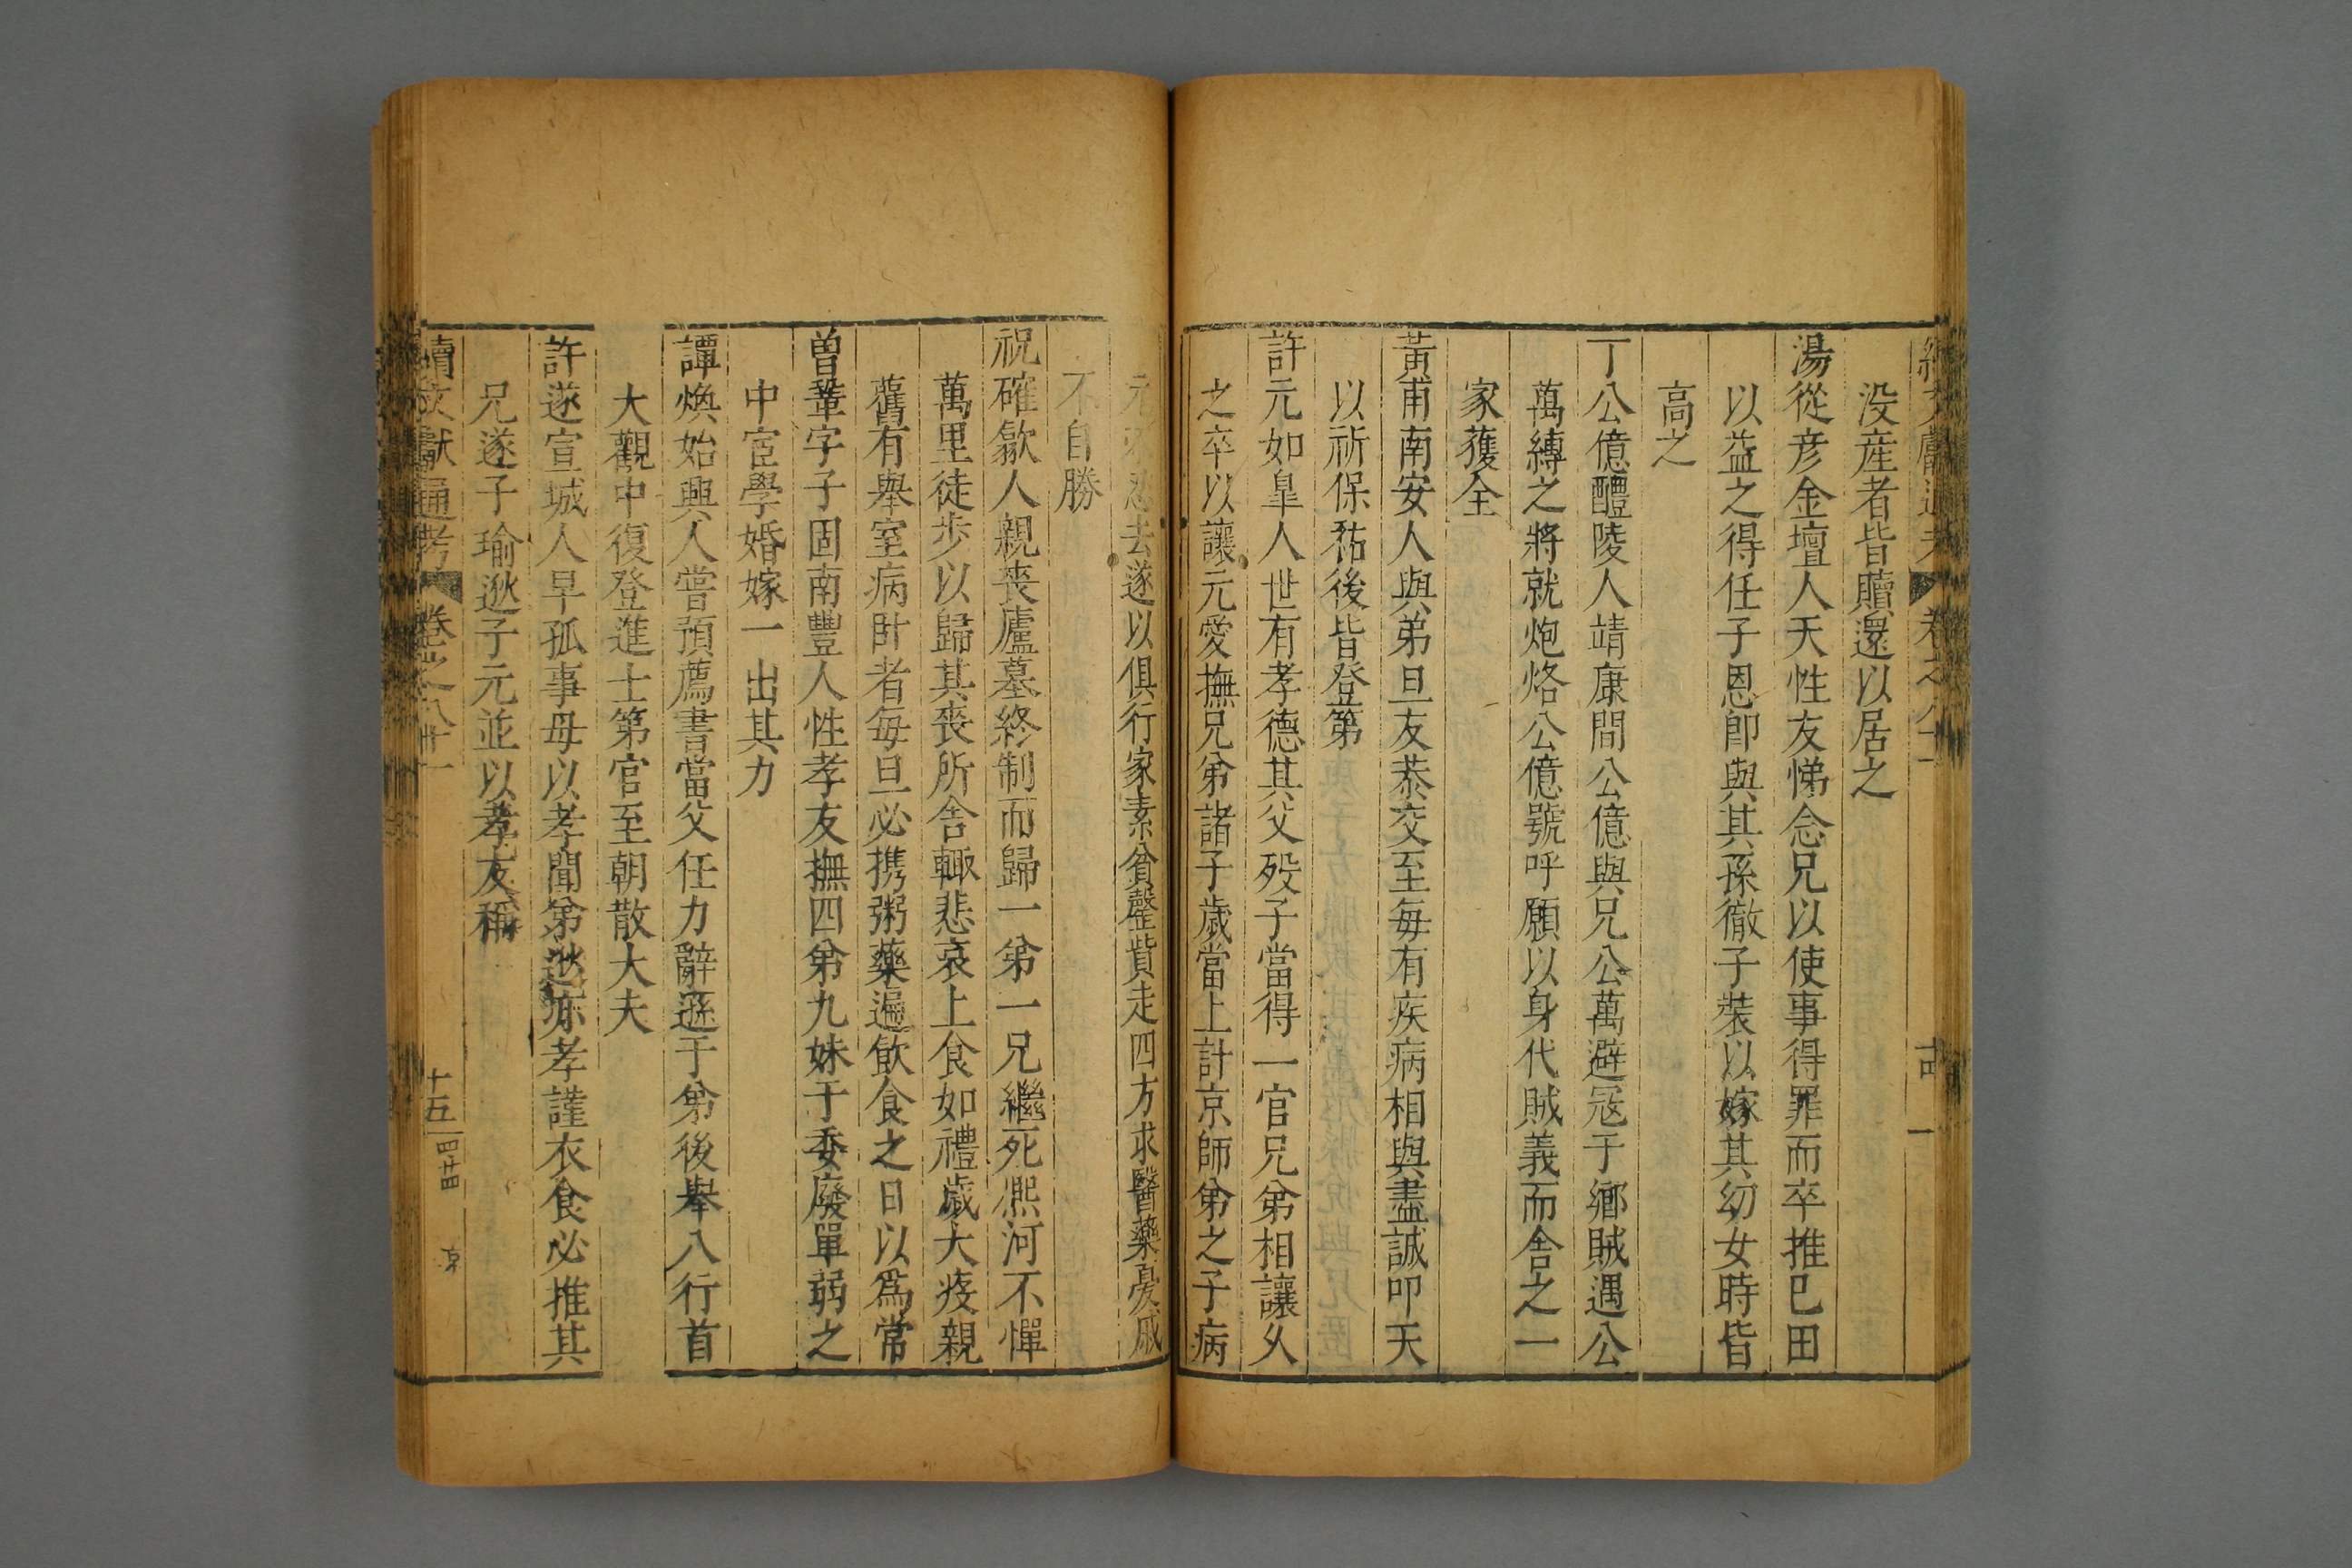 續文獻通考 卷之八十一 十四
没産者皆贖還以居之
湯從彦金壇人天性友悌念兄以使事得罪而卒推巳田
以益之得任子恩卽與其孫徹子裝以嫁其幼女時皆
高之
丁公億醴陵人靖康間公億與兄公萬避冦于鄉賊遇公
萬縳之將就炮烙公億號呼願以身代賊義而舍之一
家獲全
黃甫南安人與弟旦友恭交至毎有疾病相與盡誠叩天
以祈保祐後皆登第
許元如臯人世有孝德其父殁子當得一官兄弟相讓乆
之卒以讓元愛撫兄弟諸子歲當上計京師弟之子病
元不忍去遂以俱行家素貧罄貲走四方求醫藥憂戚
不自勝
祝確歙人親喪廬墓終制而歸一弟一兄繼死熈河不憚
萬里徒歩以歸其喪所舍輙悲哀上食如禮歲大疫親
舊有舉室病卧者毎旦必携粥藥遍飲食之日以爲常
曽鞏字子固南豐人性孝友撫四弟九妹于委廢單弱之
中宦學婚嫁一出其力
譚煥始興人嘗預薦書當父任力辭遜于弟後舉八行首
大觀中復登進士第官至朝散大夫
許遂宣城人早孤事母以孝聞弟逖亦孝謹衣食必推其
兄遂子瑜逖子元並以孝友稱
續文獻通考 卷之八十一 十五 四百十四 京